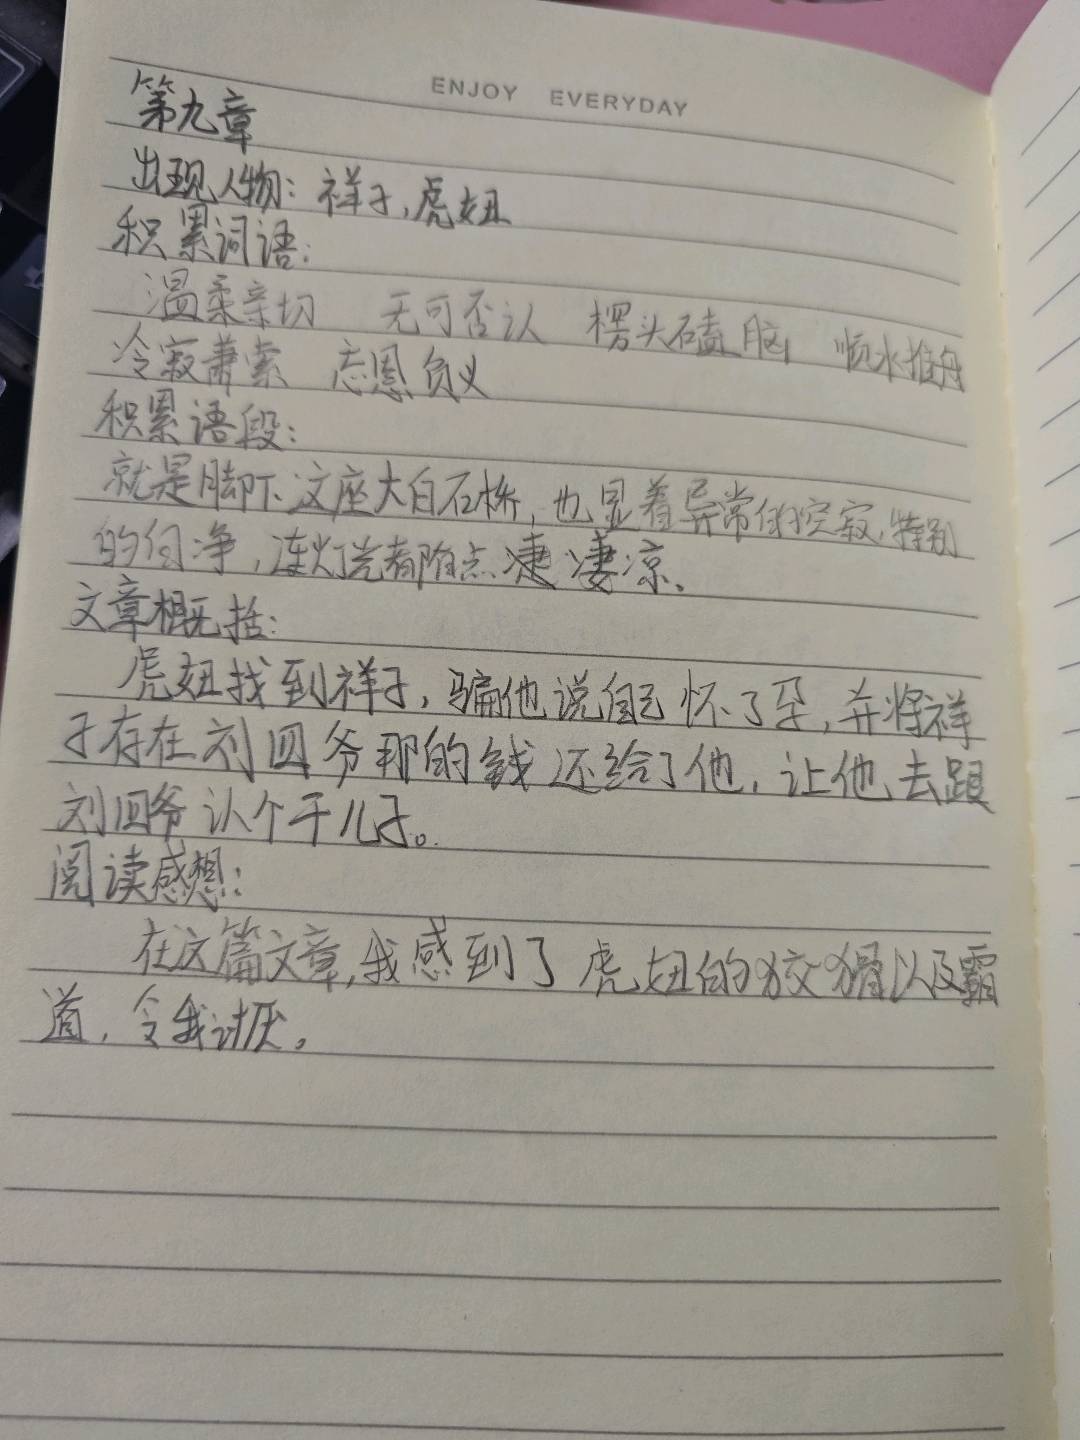 ENJOY EVERYDAY
第九章
出现人物：祥子，虎妞
积累词语：
温柔亲切 无可否认 楞头磕脑 顺水推舟
冷寂萧索 忘恩负义
积累语段：
就是脚下这座大白石桥，也显着异常的空寂，特别
的白净，连灯光都有点凄凉。
文章概括：
虎妞找到祥子，骗他说自己怀了孕，并将祥
子存在刘四爷那的钱还给了他，让他去跟
刘四爷认个干儿子。
阅读感想：
在这篇文章，我感到了虎妞的狡猾以及霸
道，令我讨厌。